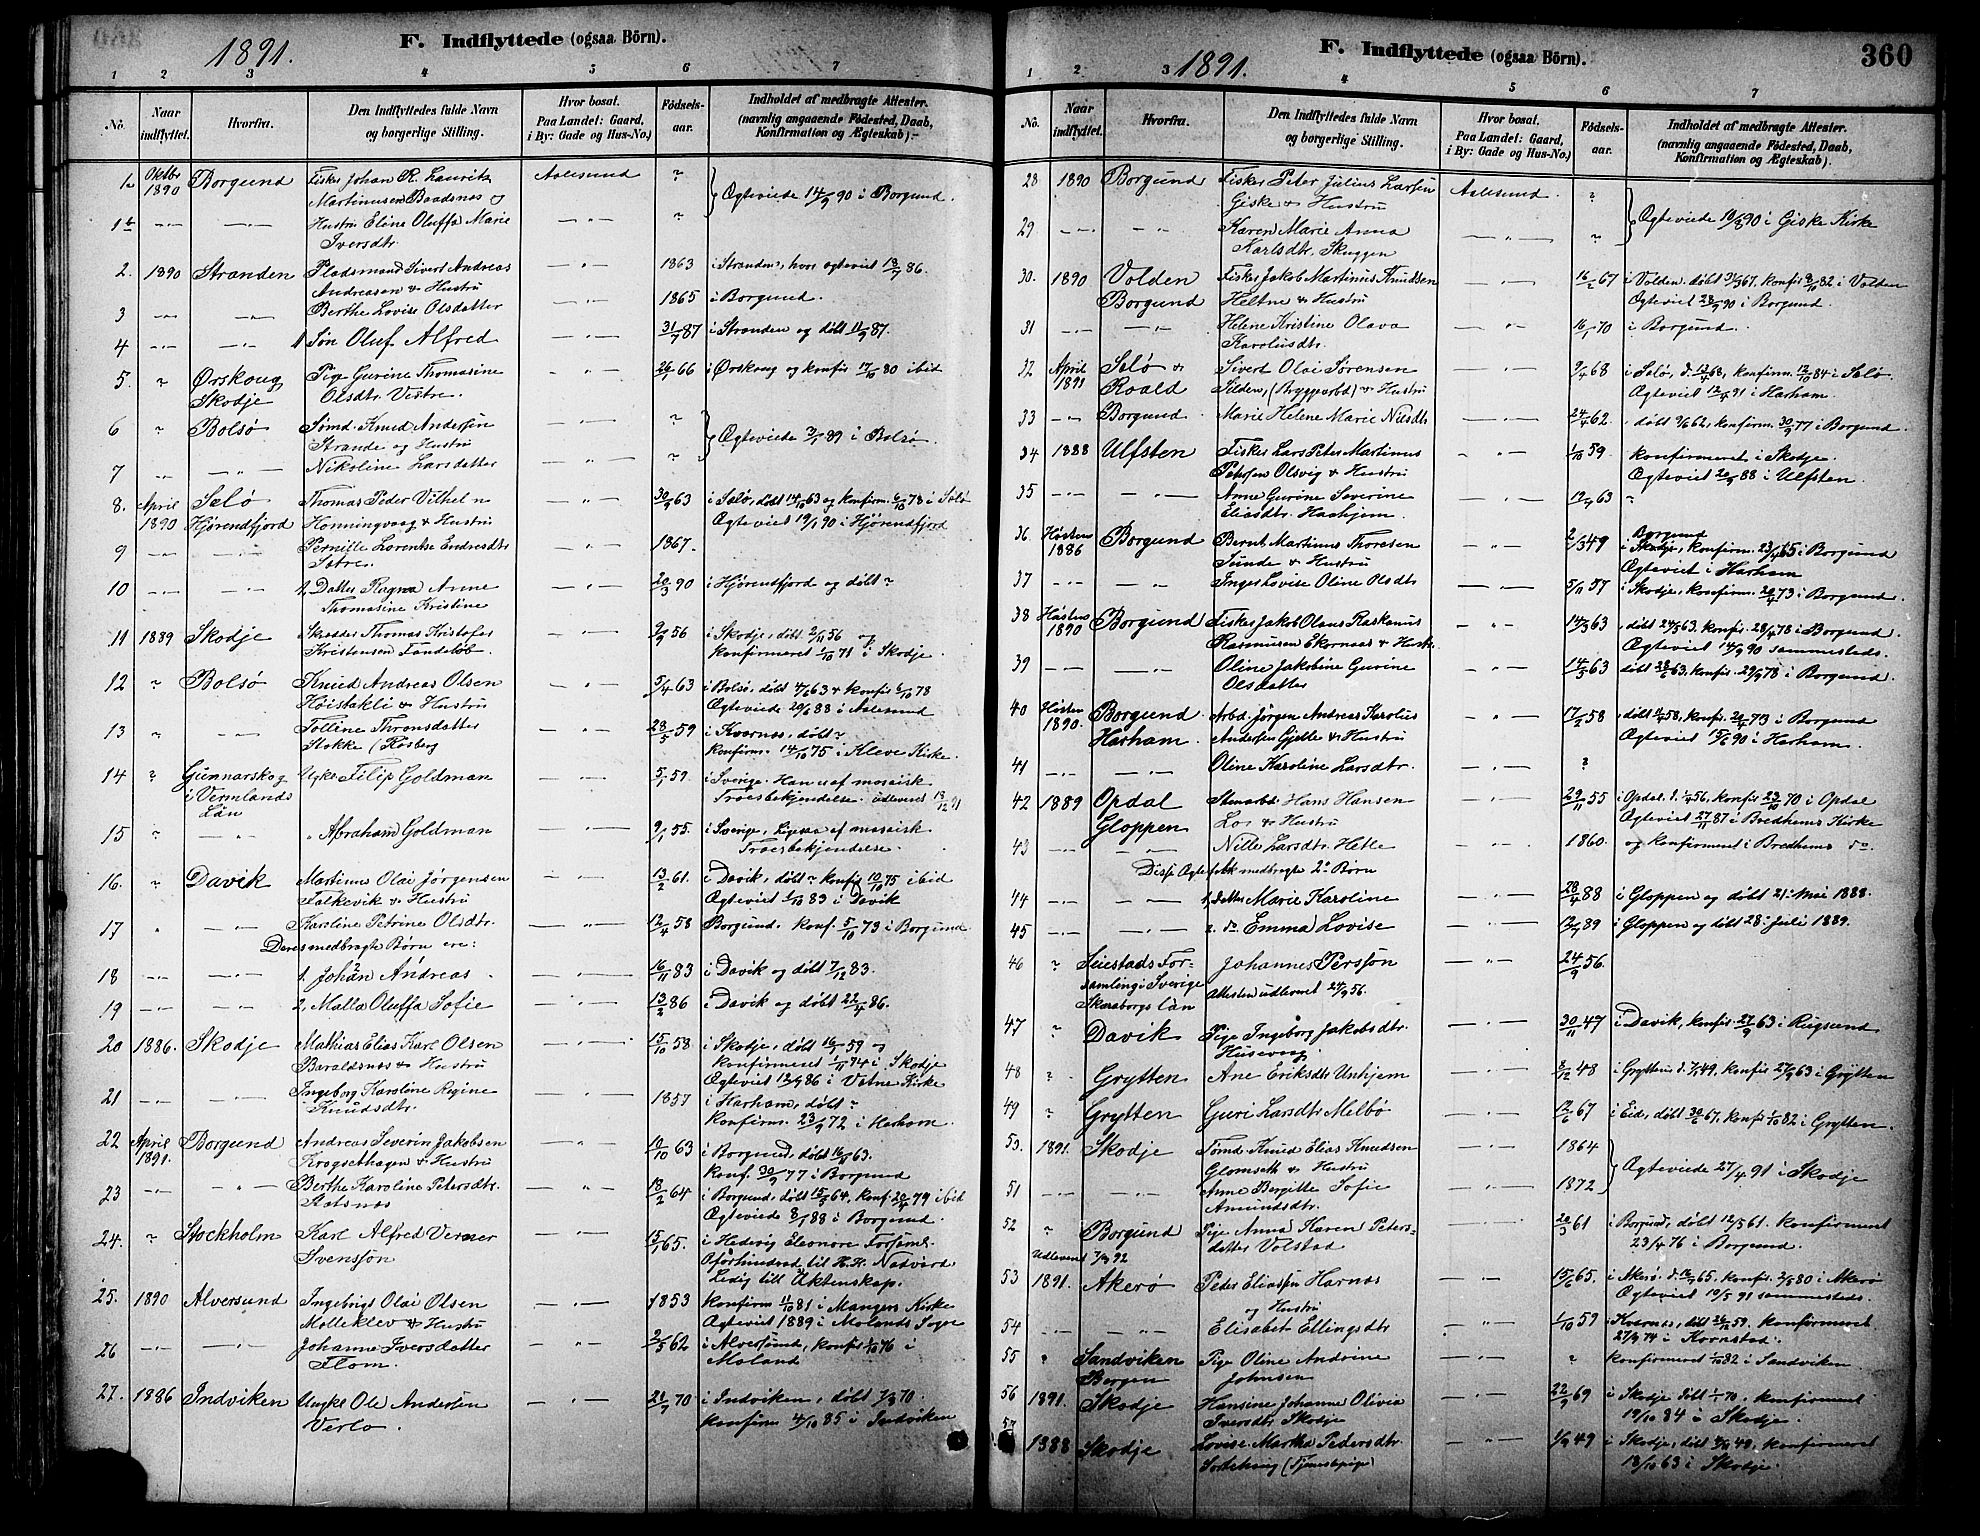 1891.
F. Indflyttede (ogsaa Börn).
1 2 3 4 5 6 7
No.
Naar indflyttet.
Hvorfra.
Den Indflyttedes fulde Navn og borgerlige Stilling.
Hvor bosat. Paa Landet: Gaard, i By: Gade og Hus-No.)
Födsels-aar.
Indholdet af medbragte Attester. (navnlig angaaende Födested, Daab, Konfirmation og Ægteskab).
1a Oktbr 1890 Borgund Fisker Johan R. Lauritz Aalesund ?
Martinusen Baadsnes og
Ægteviede 14/9 90 i Borgund.
1b Hustru Eline Oluffa Marie ?
Iversdtr.
2. 1890 Stranden Pladsmand Sivert Andreas 1863 i Stranden, hvor ægteviet 13/7 86.
Andreasen & Hustru
3 Berthe Lovise Olsdatter 1865 i Borgund.
4 1 Søn Oluf Alfred 31/7 87 i Stranden og døbt 11/9 87.
5. " Ørskoug Pige Gurine Thomasine 26/1 66 i Ørskoug og konfir 17/10 80 ibid
Skodje Olsdtr Vestre.
6 " Bolsø Sømd. Knud Andersen ?
Strande og Hustru
Ægteviede 3/1 89 i Bolsø.
7 Nikoline Larsdatter ?
8. April Selø Thomas Peder Vilhelm 30/9 63 i Selø, døbt 14/10 63 og konfirm. 6/10 78 i Selø
1890 Hjørendfjord Honningvaag & Hustru Ægteviet 19/1 90 i Hjørendfjord
9 Pernille Lorentse Endresdtr 1867.
Sætre.
10 1, Datter Ragna Anne 20/3 90 i Hjørendfjord og døbt ?
Thomasine Kristine
11 1889 Skodje Skredder Thomas Kristofer 9/9 56 i Skodje, døbt 2/11 56 og
Kristensen Tandeløb konfirmeret 1/10 71 i Skodje.
12 " Bolsø Knud Andreas Olsen 5/4 63 i Bolsø, døbt 4/6 63 & konfir 6/10 78
Høistakli & Hustru Ægteviede 29/6 88 i Aalesund
13 Tolline Thronsdatter 28/5 59 i Kvernes, døbt ?
Stokke (Røsberg konfirm. 14/10 75 i Kleve Kirke.
14 " Gunnarskog Ugkr Filip Goldman 5/1 59. i Sverige. Han er af mosaisk
i Vermlands Län Troesbekjendelse. udleveret 13/12 91
15 " Abraham Goldman 9/1 55. i Sverige, Ligesaa af mosaisk
Troesbekjendelse.
16. " Davik Martinus Olai Jørgensen 13/2 61. i Davik, døbt ? konfir 10/10 75 ibid
Falkevik & Hustru Ægteviet 1/10 83 i Davik
17 Karoline Petrine Olsdtr. 12/4 58 Borgund. konf. 5/10 73 i Borgund
Deres medbragte Børn ere:
18 1. Johan Andreas 16/11 83 i Davik og døbt 7/12 83.
19 2, Malla Oluffa Sofie 13/2 86 i Davik og døbt 22/4 86.
20 1886. Skodje Mathias Elias Karl Olsen 15/10 58 i Skodje, døbt 16/1 59 og
Baraldsnes & Hustru konfirmeret 1/11 74 i Skodje
Ægteviet 13/9 86 i Vatne Kirke
21 Ingeborg Karoline Regine 1857 i Harham, døbt ?
Knudsdtr. konfirm. 23/9 72 i Harham.
22 April Borgund Andreas Severin Jakobsen 10/10 63 i Borgund, døbt 16/11 63.
1891. Krogsethagen & Hustru konf. 30/9 77 i Borgund
23 Berthe Karoline Petersdtr. 18/2 64 i Borgund, døbt 13/3 64, konf. 20/4 79 ibid
Aatsnes Ægteviede 8/1 88 i Borgund.
24. " Stockholm Karl Alfred Verner 15/1 65. i Hedvig Eleonore Forsaml.
Svensson Oförhindrad til H. H. Nattvard
Ledig till Äktenskap.
25. 1890 Alversund Ingebrigt Olai Olsen 1853 konfirm 11/10 81 i Mangers Kirke
Molleklev & Hustru Ægteviet 1889 i Molands Sogn
26 Johanne Iversdatter 2/5 62 i Alversund, konfir 1/10 76 i
Flom. Moland
27. 1886 Indviken Ungkr Ole Andersen 21/7 70 i Indviken, døbt 7/8 70.
Verlo. konfirm 4/10 85 i Indviken
1891.
F. Indflyttede (ogsaa Börn).
360
1 2 3 4 5 6 7
No.
Naar indflyttet.
Hvorfra.
Den Indflyttedes fulde Navn og borgerlige Stilling.
Hvor bosat. Paa Landet: Gaard, i By: Gade og Hus-No.)
Födsels-aar.
Indholdet af medbragte Attester. (navnlig angaaende Födested, Daab, Konfirmation og Ægteskab).
28 1890 Borgund Fisker Peter Julius Larsen Aalesund ?
Giske & Hustru
Ægteviede 10/8 90 i Giske Kirke
29 Karen Marie Anna ?
Karlsdtr. Skuggen
30. 1890 Volden Fisker Jakob Martinus Knudsen 16/2 67 i Volden, døbt 31/3 67, konfir 8/10 82 i Volden
Borgund Heltne & Hustru Ægteviet 28/9 90 i Borgund.
31 Helene Kristine Olava 16/1 70 i Borgund.
Karolusdtr.
32 April Selø & Sivert Olai Sørensen 9/4 68 i Selø, d. 13/4 68, konfirm. 12/10 84 i Selø.
1891 Roald Silden, (Bryggearbd) & Hustru Ægteviet 12/4 91 i Harham.
33 Borgund Marie Helene Marie Nilsdtr 24/4 62. døbt 9/6 62, konfirm. 30/9 77 i Borgund.
34 1888 Ulfsten Fisker Lars Peter Martinus 1/10 59 konfirmeret i Skodje.
Petersen Olsvig & Hustru Ægteviet 20/9 88 i Ulfsten.
35 Anne Gurine Severine 12/9 63 ?
Eliasdtr. Hashjem.
36 Høsten Borgund Bernt Martinus Thoresen 2/3 49 Borgund
1886 Sunde & Hustru i Skodje, konfirm. 23/4 65 i Borgund
Ægteviet i Harham
37 Inger Lovise Oline Olsdtr 5/11 57 i Skodje, konfirm. 20/4 73 i Borgund.
38 Høsten Borgund Fisker Jakob Olaus Raskanus 14/3 63 døbt 24/5 63. konfir. 28/4 78 i Borgund
1890 Rasmusen Ekornæs & Hustr. Ægteviet 14/9 90 sammesteds.
39 Oline Jakobine Gurine 14/5 63 døbt 28/6 63, konfir. 29/9 78 i Borgund.
Olsdatter
40 Høsten Borgund Arbd. Jørgen Andreas Karolus 17/2 58 døbt 11/4 58, konfir. 20/4 73 i Borgund
1890. Harham Andersen Gjelle & Hustru Ægteviet 15/6 90 i Harham.
41 Oline Karoline Larsdtr. ?
42 1889 Opdal Stenarbd. Hans Hansen 29/11 55 i Opdal d. 1/4 56, konfir 23/10 70 i Opdal
Gloppen Los & Hustru Ægteviet 27/11 87 i Bredhems Kirke
43 Nille Larsdtr. Hetle 1860. og konfirmeret i Bredhems do.
Disse Ægtefolk medbragte 2 Børn
44 1, Datter Marie Karoline 28/4 88 i Gloppen og døbt 21 Mai 1888.
45 2. do Emma Lovise 12/7 89 i Gloppen og døbt 28 Juli 1889.
46 " Seiestads For- Johannes Persson 24/9 56.
samling i Sverige Attesten udleveret 24/9 56.
Skaraborgs län
47 " Davik Pige Ingeborg Jakobsdtr. 30/11 47 i Davik, konfir. 27/9 63 i Rugsund
Husevaag
48 " Grytten Ane Eriksdtr Unhjem 8/12 48 i Gryttens d. 7/1 49, konfir 27/9 63 i Grytten
49 " Grytten Guri Larsdtr Melbø 12/6 67 i Eid, døbt 30/6 67, konfir 1/10 82 i Grytten.
50. 1891. Skodje Tømd. Knud Elias Knudsen 1864
Glomseth & Hustru
Ægteviede 27/4 91 i Skodje
51 Anne Bergitte Sofie 1872
Amundsdtr.
52 " Borgund Pige Anna Karen Peters- 20/3 61 i Borgund, døbt 12/5 61. konfirmeret
Udleveret 7/9 92 datter Volstad 23/4 76 i Borgund.
53 1891. Akerø Peder Eliassen Harnes 15/6 65. i Akerø d. 16/7 65, konfir. 2/5 80 i Akerø
og Hustru Ægteviet 19/5 91 sammesteds.
54 Elisabet Ellingsdtr 1/10 59 i Kvernes, døbt 26/12 59. konfirmeret
27/9 74 i Kornstad.
55 " Sandviken Pige Oline Andrine ? konfirmeret 1/10 82 i Sandviken
Bergen Johnsen
56 1891. Skodje Hansine Johanne Olivia 22/9 69 i Skodje døbt 1/1 70. konfirmeret
Iversdtr Skodje 19/10 84 i Skodje.
57 1888 Skodje Lovise Martha Pedersdtr. 1/9 49 i Skodje, døbt 4/9 49, konfirmeret
(Tjenestepige) 18/10 63 i Skodje.